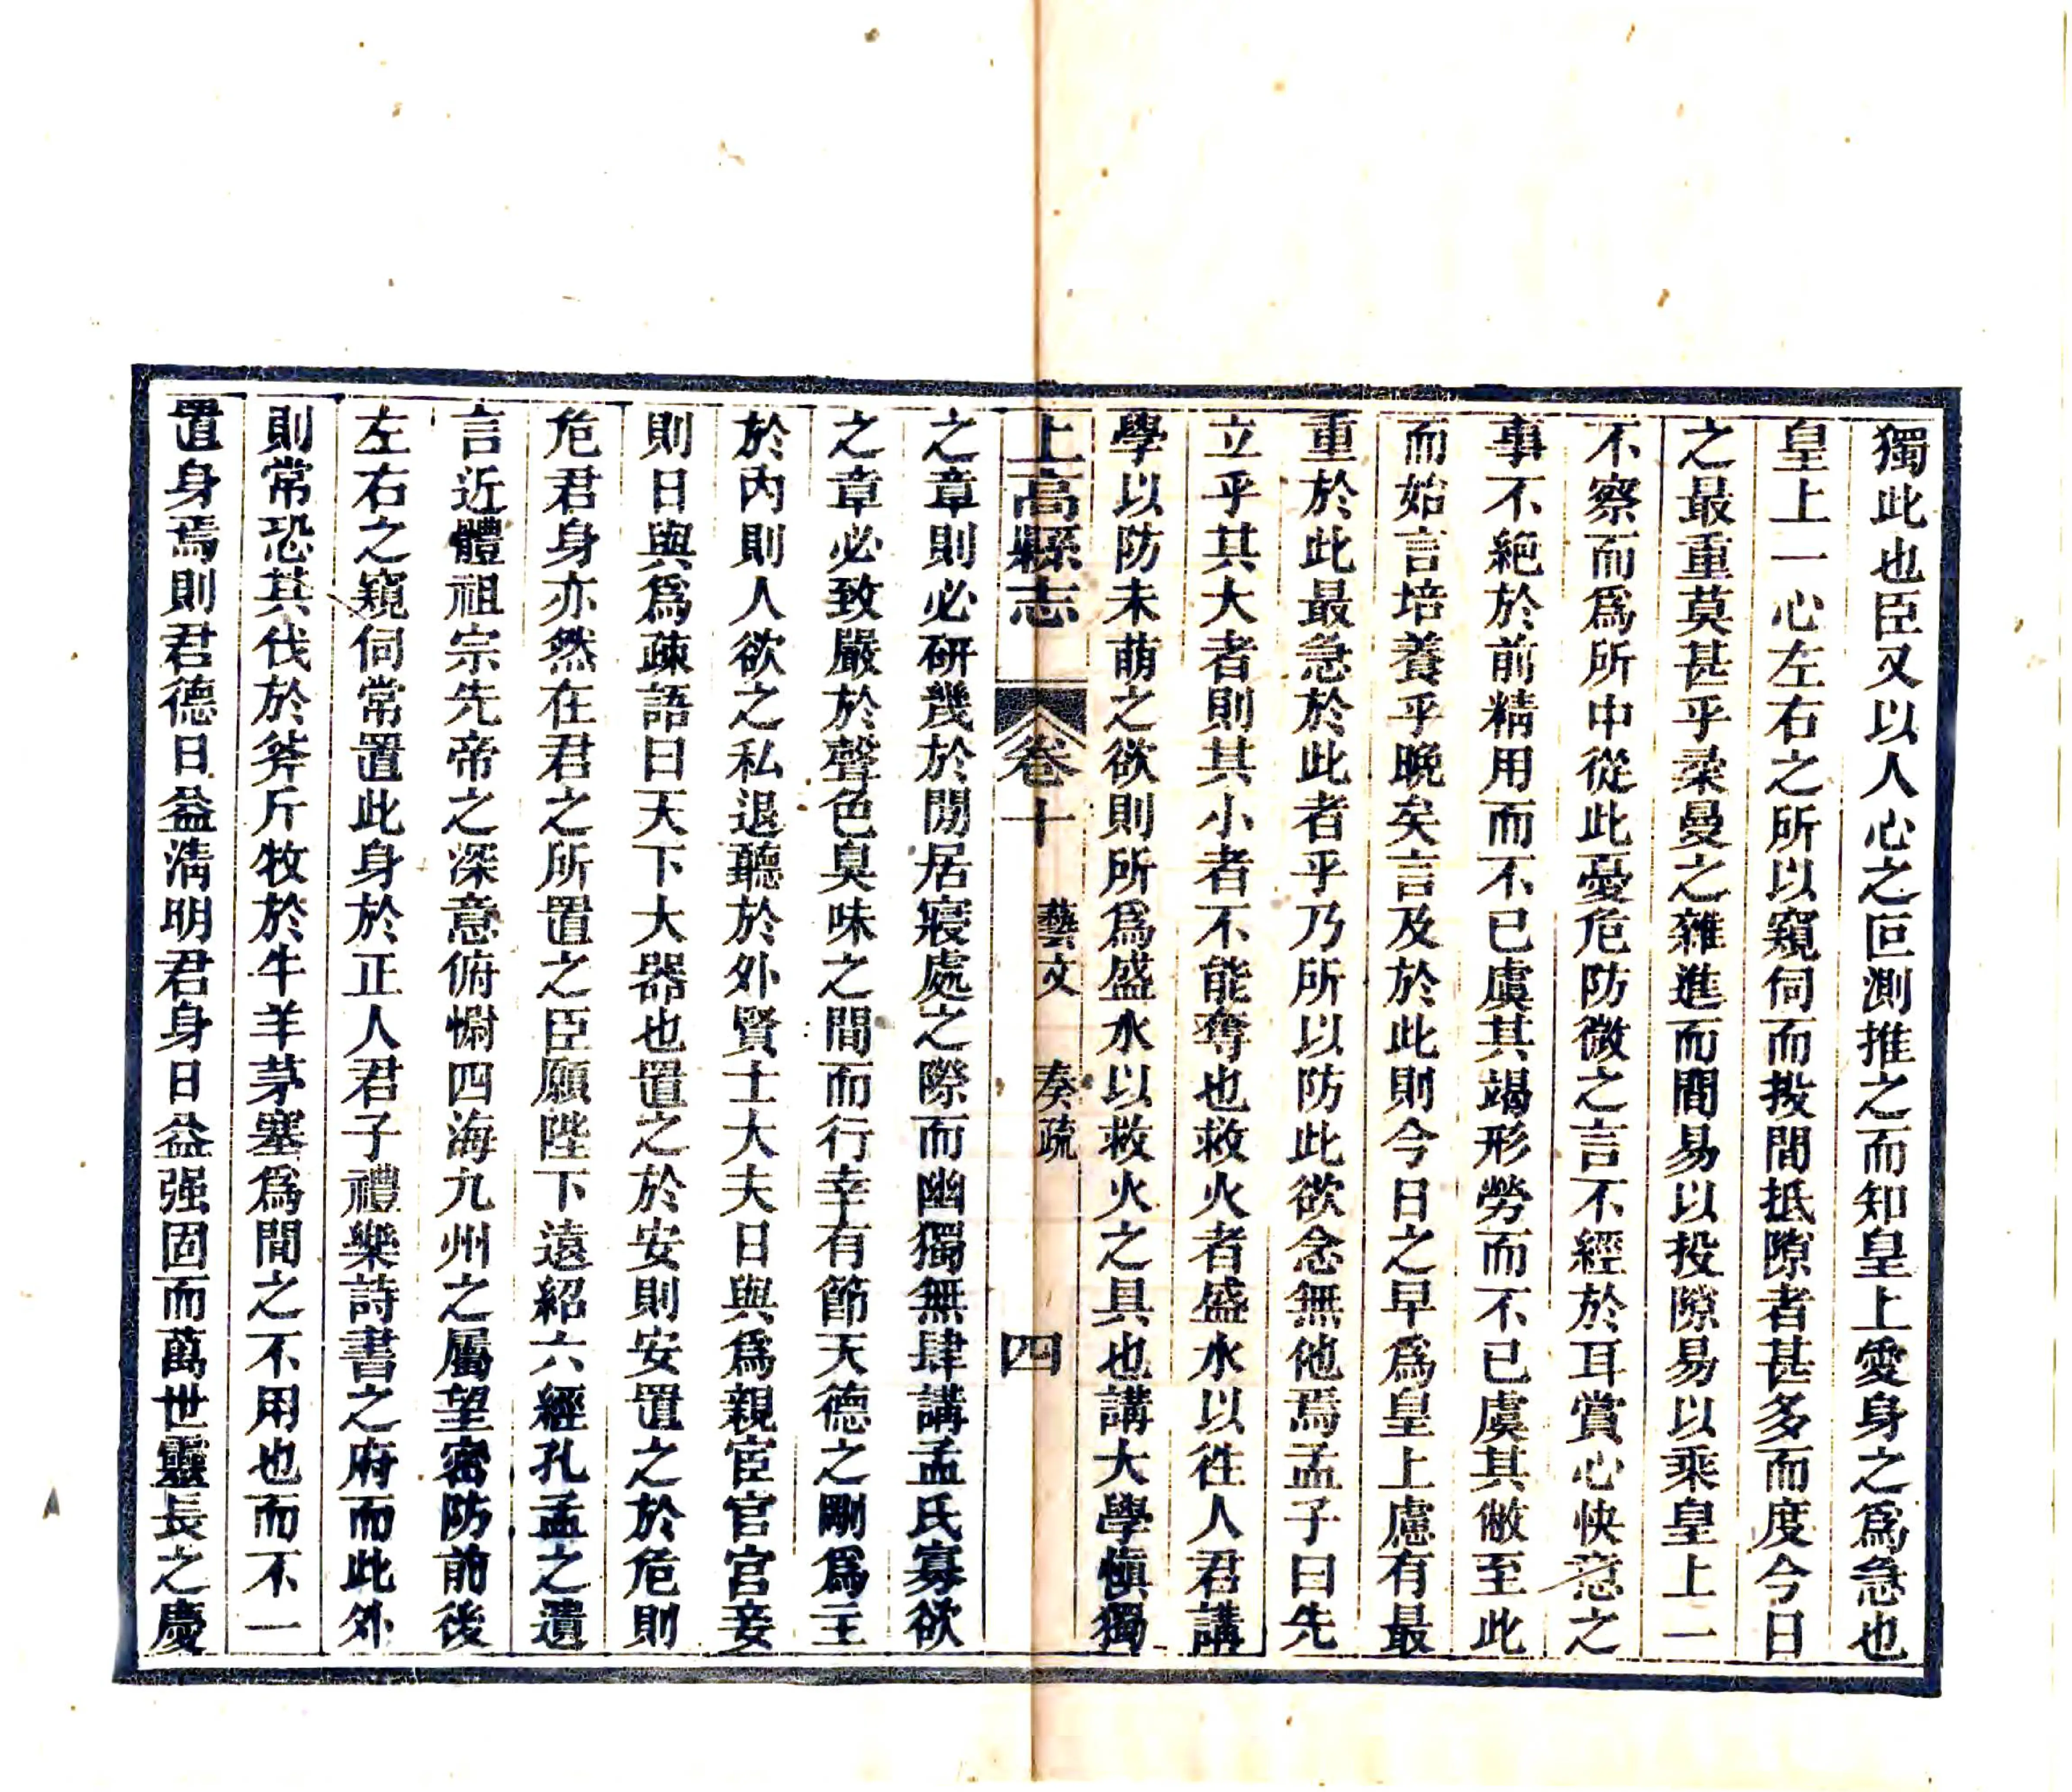 獨此也臣又以人心之叵測推之而知皇上愛身之爲急也
皇上一心左右之所以窺伺而投間抵隙者甚多而度今日
之最重莫甚乎柔曼之雜進而間易以投隙易以乘皇上一
不察而爲所中從此憂危防微之言不經於耳賞心快意之
事不絕於前精用而不已虞其竭形勞而不已虞其敝至此
而始言培養乎晚矣言及於此則今日之早爲皇上慮有最
重於此最急於此者乎乃所以防此欲念無他焉孟子曰先
立乎其大者則其小者不能奪也救火者盛水以徃人君講
學以防未萌之欲則所爲盛水以救火之具也講大學愼獨
上高縣志 卷十 藝文 奏疏 四
之章則必研幾於閒居寢處之際而幽獨無肆講孟氏寡欲
之章必致嚴於聲色臭味之間而行幸有節天德之剛爲主
於內則人欲之私退聽於外賢士大夫日與爲親宦官宮妾
則日與爲疎語曰天下大器也置之於安則安置之於危則
危君身亦然在君之所置之臣願陛下遠紹六經孔孟之遺
言近體祖宗先帝之深意俯慰四海九州之屬望密防前後
左右之窺伺常置此身於正人君子禮樂詩書之府而此外
則常恐其伐於斧斤牧於牛羊茅塞爲間之不用也而不一
置身焉則君德日益淸明君身日益强固而萬世靈長之慶